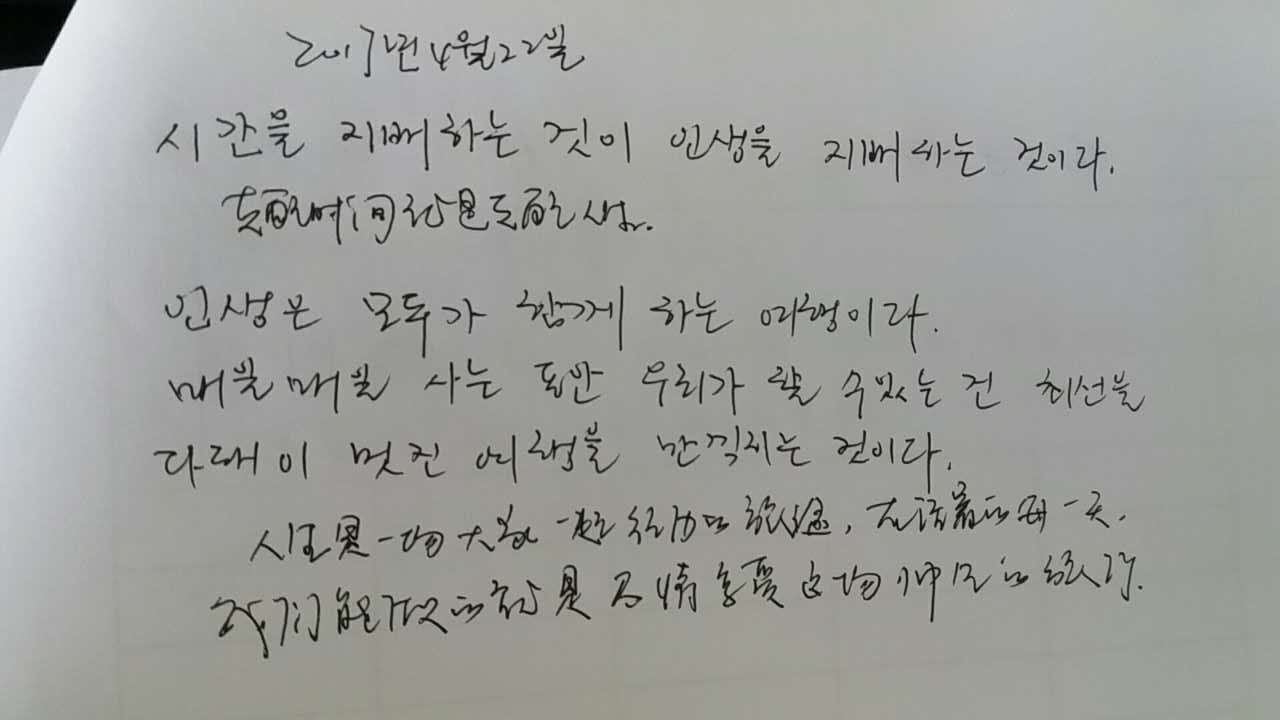 2017년 4월 22일
시간을 지배하는 것이 인생을 지배하는 것이다.
支配时间就是支配人生.
인생은 모두가 함께 하는 여행이다.
매일매일 사는 동안 우리가 할 수 있는 건 최선을
다해 이 멋진 여행을 만끽하는 것이다.
人生是一场大家一起经历的旅途,在活着的每一天.
我们能做的就是尽情享受这场神圣的旅行.